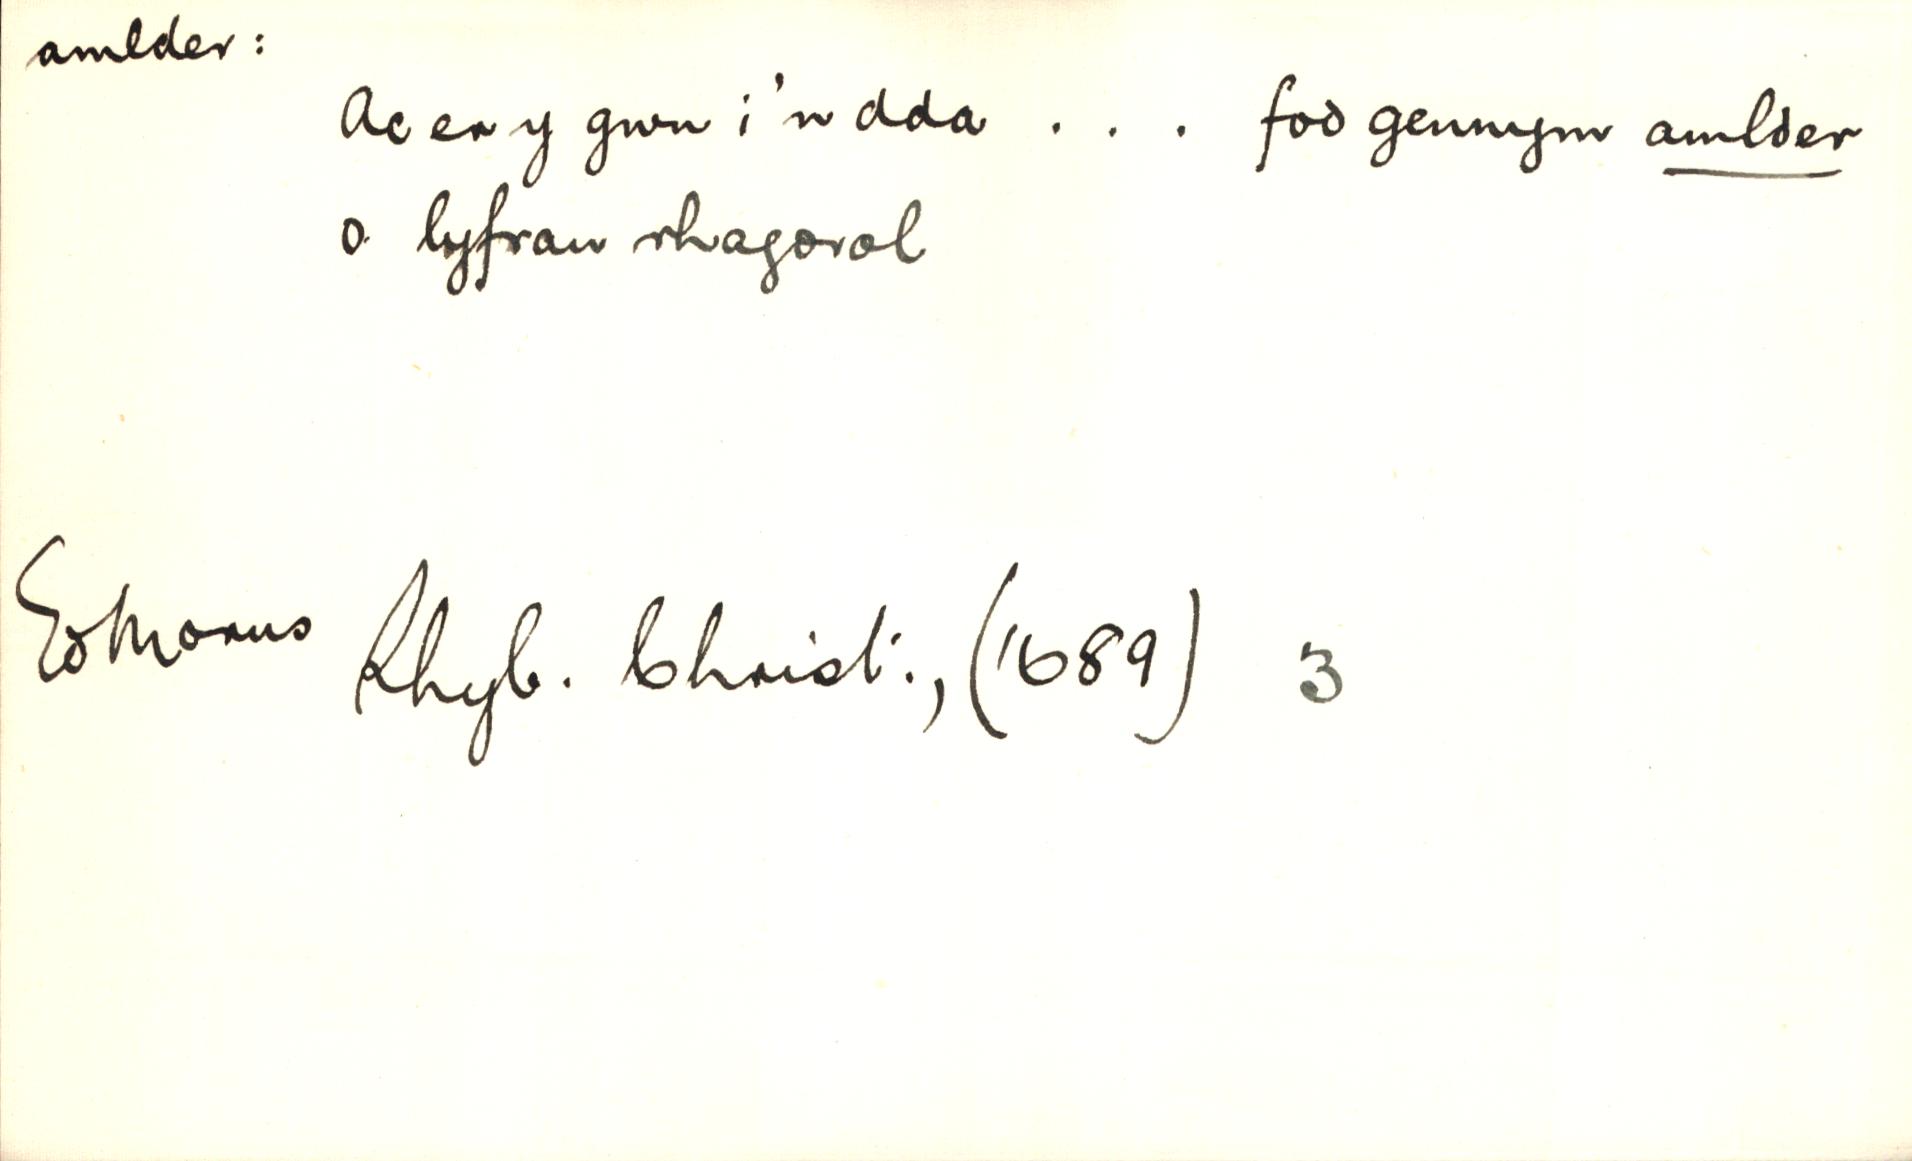 amlder:
Ac er y gwn i'n dda . . . fod gennym amlder
o lyfrau rhagorol
Ed Morus Rhyb. Christ., (1689) 3